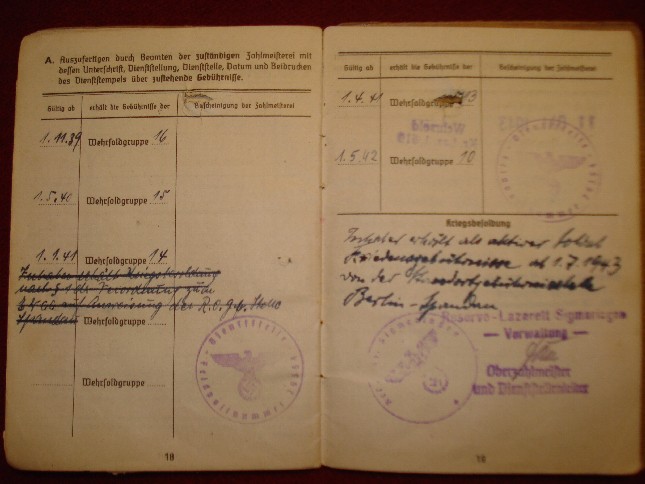 A. Auszufertigen durch Beamten der zuständigen Zahlmeisterei mit
dessen Unterschrift, Dienststellung, Dienststelle, Datum und Beidrucken
des Dienststempels über zustehende Gebührnisse.
Gültig ab erhält die Gebührnisse der Bescheinigung der Zahlmeisterei
1.11.39 Wehrsoldgruppe 16
1.5.40 Wehrsoldgruppe 15
1.1.41 Wehrsoldgruppe 14
Inhaber erhält Kriegsbesoldung
nach § 1 der Verordnung zum
auf Anweisung der
Spandau Wehrsoldgruppe
Wehrsoldgruppe
18
Gültig ab erhält die Gebührnisse der Bescheinigung der Zahlmeisterei
1.4.41 Wehrsoldgruppe 13
1.5.42 Wehrsoldgruppe 10
Kriegsbesoldung
Inhaber erhält als aktiver Soldat
Friedensgebührnisse ab 1.7.1943
von der Standortgebührnisstelle
Berlin-Spandau
Reserve-Lazarett Sigmaringen
— Verwaltung —
Oberzahlmeister
und Dienststellenleiter